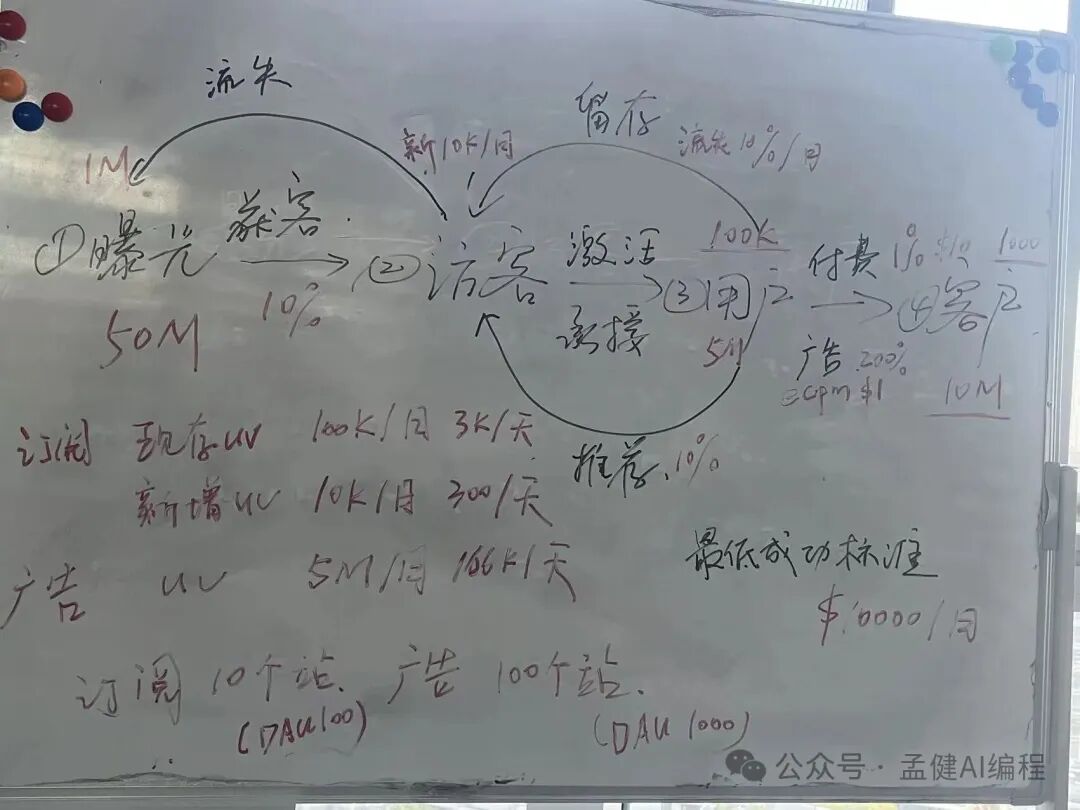 流失
留存
新10K/月
流失10%/月
1M
①曝光
获客
10%
50M
②访客
激活
承接
100K
③用户
5M
付费1%
1000
④客户
广告 200%
ecpm $1
10M
推荐 10%
订阅 现存UV 100K/月 3K/天
新增UV 10K/月 300/天
广告 UV 5M/月 166K/天
最低成功标准
$10000/月
订阅 10个站、广告 100个站.
(DAU100)
(DAU 1000)
公众号·孟健AI编程